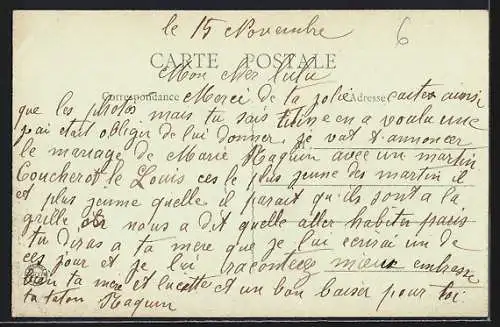 le 15 Novembre
6
CARTE POSTALE
Mon cher lulu
Correspondance Merci de ta jolie Adresse carte ainsi
que les photos mais tu sais tune en a voulu une
j'ai était obliger de lui donner. je vat t'annoncer
le mariage de Marie Naquin avec un martin
Coucherot le Louis ces le plus jeune des martin il
et plus jeune quelle il parait qu'ils sont a la
grille nous a dit quelle aller habiter paris
tu diras a ta mere que je lui ecrirai un de
ces jour et je lui raconterez mieux embrasse
bien ta mere et lucette et un bon baiser pour toi
ta taton Naquin